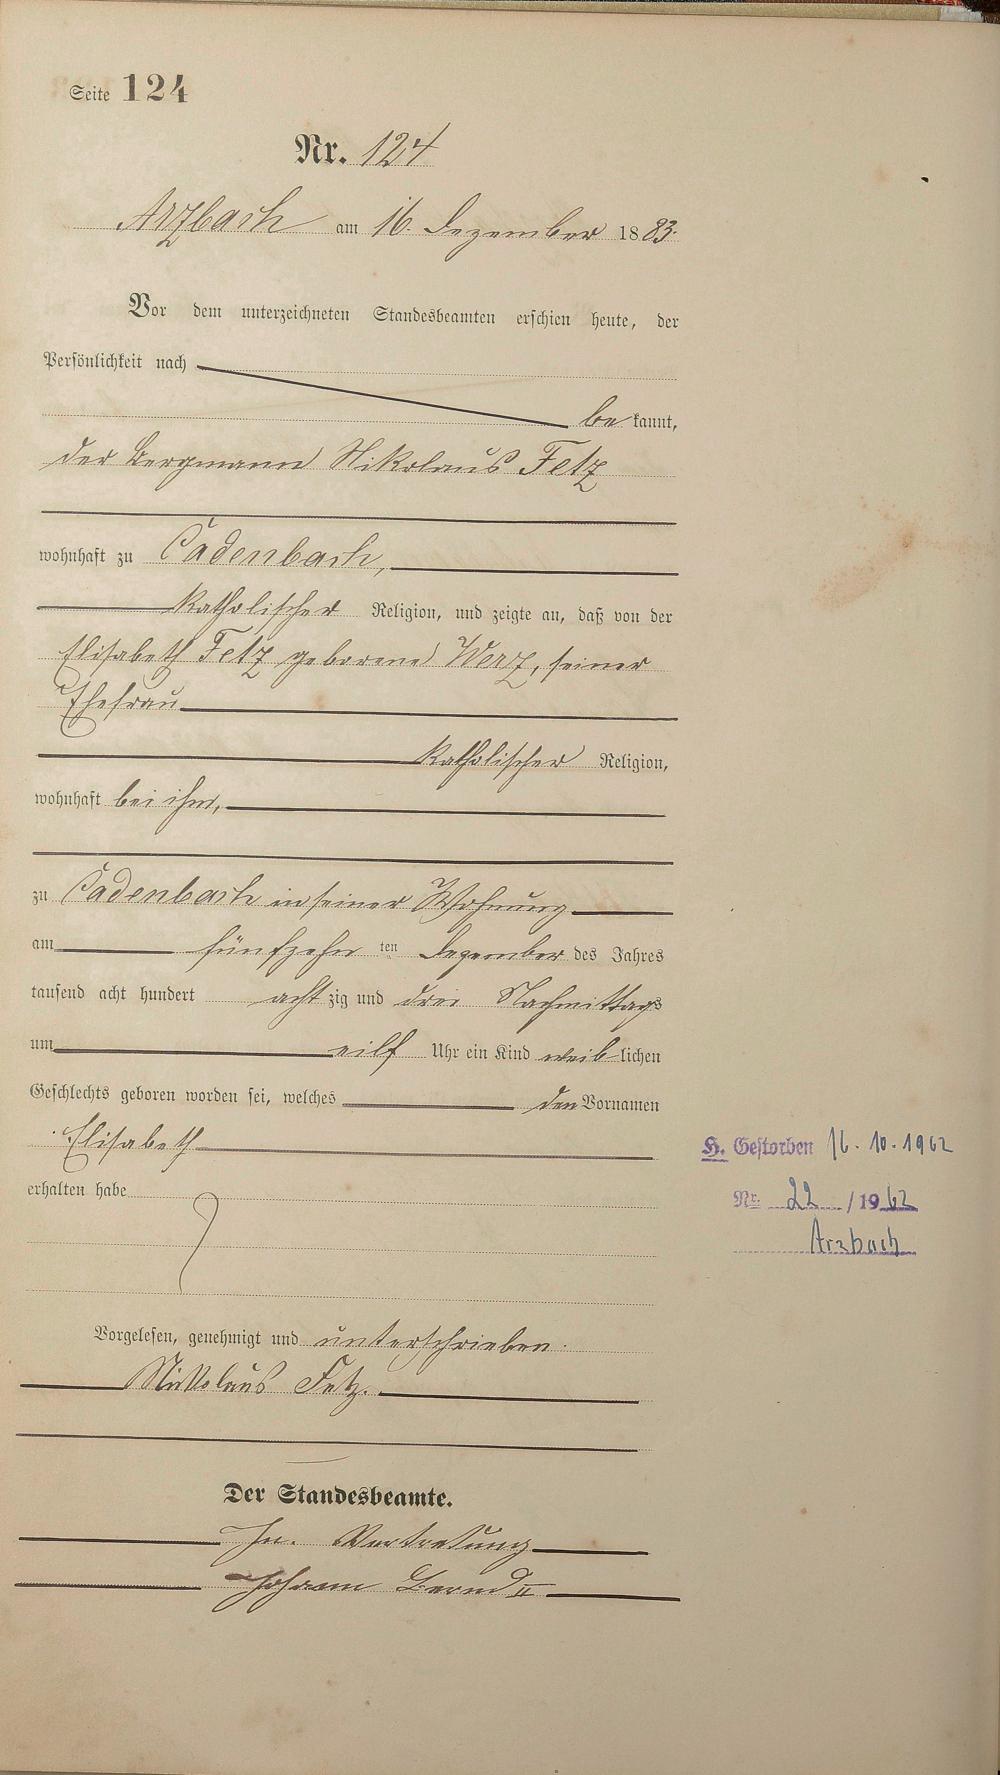 Seite 124
Nr. 124
Arzbach am 16. Dezember 1883.
Vor dem unterzeichneten Standesbeamten erschien heute, der
Persönlichkeit nach
be kannt,
der Bergmann Nikolaus Fetz
wohnhaft zu Cadenbach,
katholischer Religion, und zeigte an, daß von der
Elisabeth Fetz geborene Werz, seiner
Ehefrau
katholischer Religion,
wohnhaft bei ihm,
zu Cadenbach in seiner Wohnung
am fünfzehn ten Dezember des Jahres
tausend acht hundert acht zig und drei Nachmittags
um eilf Uhr ein Kind weib lichen
Geschlechts geboren worden sei, welches den Vornamen
Elisabeth
erhalten habe
H. Gestorben 16.10.1962
Nr. 22 / 1962
Arzbach
Vorgelesen, genehmigt und unterschrieben.
Nikolaus Fetz.
Der Standesbeamte.
In Vertretung
Johann Bernd II